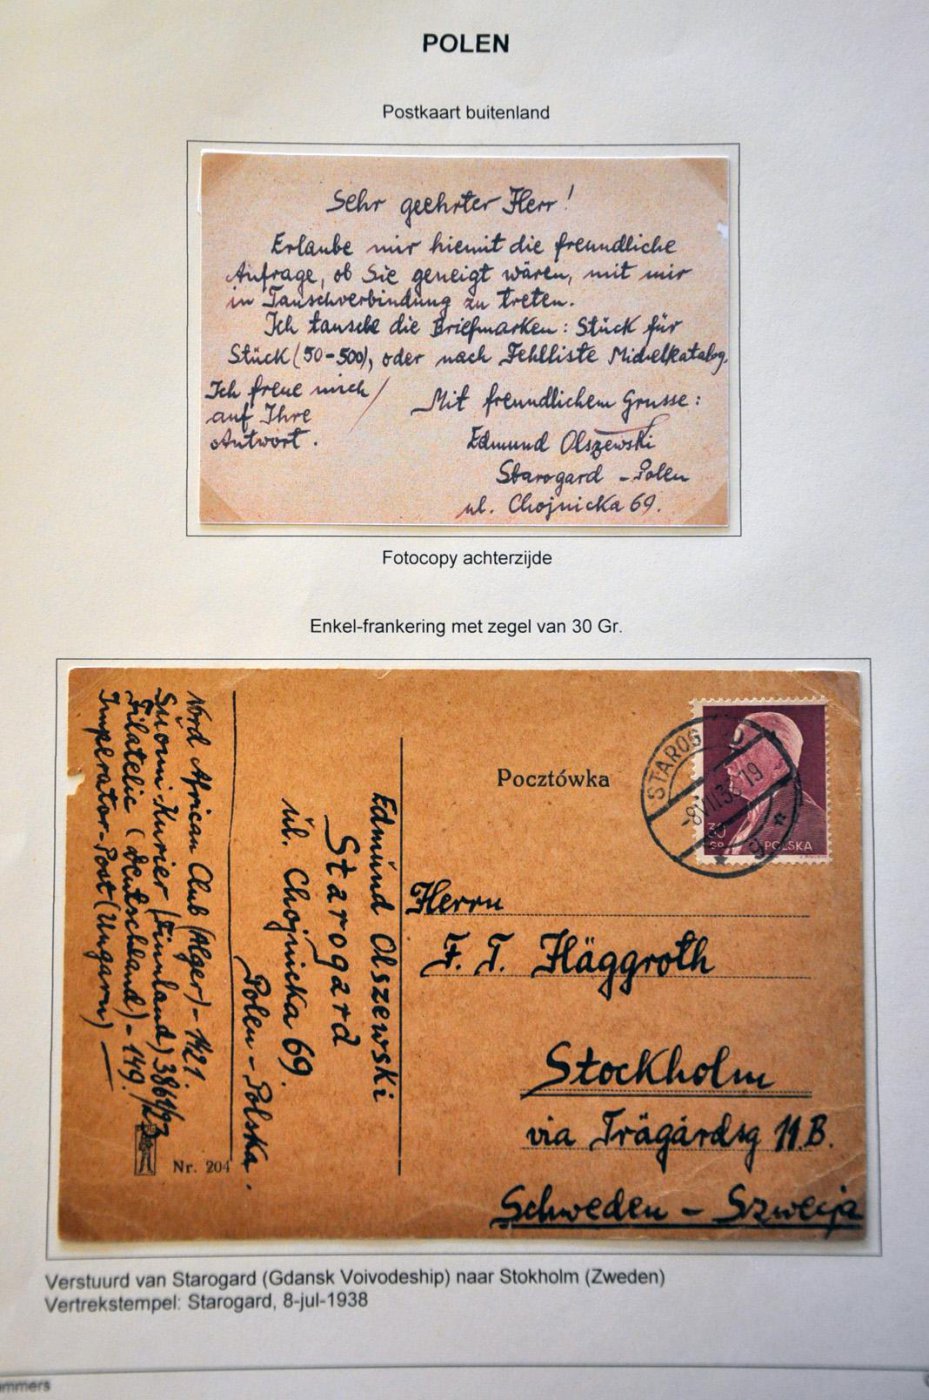 POLEN
Postkaart buitenland
Sehr geehrter Herr!
Erlaube mir hiemit die freundliche
Anfrage, ob Sie geneigt wären, mit mir
in Tauschverbindung zu treten.
Ich tausche die Briefmarken: Stück für
Stück (50-500), oder nach Fehlliste Michelkatalog.
Ich freue mich
auf Ihre
Antwort.
Mit freundlichem Grusse:
Edmund Olszewski
Starogard - Polen
ul. Chojnicka 69.
Fotocopy achterzijde
Enkel-frankering met zegel van 30 Gr.
Nord African Club (Alger) - 1421.
Suomi Kurier (Finnland)
Filatelic (Deutschland) - 149.
Imperator-Post (Ungarn) -
Edmund Olszewski
Starogard
ul. Chojnicka 69.
Polen - Polska.
Nr. 204
Pocztówka
STAROG D
-8VII.38 19
30
GR
POLSKA
Herrn
F. T. Häggroth
Stockholm
via Trägårdsg 11.B.
Schweden - Szwecja
Verstuurd van Starogard (Gdansk Voivodeship) naar Stokholm (Zweden)
Vertrekstempel: Starogard, 8-jul-1938
ummers